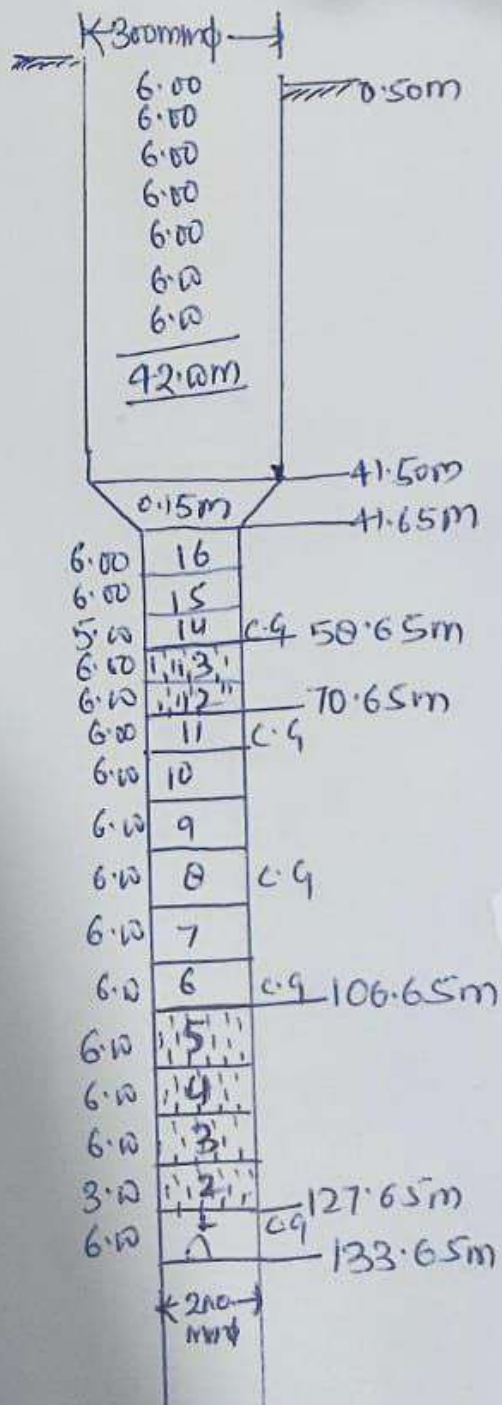 300mmφ
6.00 0.50m
6.00
6.00
6.00
6.00
6.00
6.00
42.00m
41.50m
0.15m
41.65m
6.00 16
6.00 15
5.00 14 C.G 58.65m
6.00 13
6.00 12 70.65m
6.00 11 C.G
6.00 10
6.00 9
6.00 8 C.G
6.00 7
6.00 6 C.G 106.65m
6.00 5
6.00 4
6.00 3
3.00 2 127.65m
6.00 1 C.G
133.65m
200
mmφ